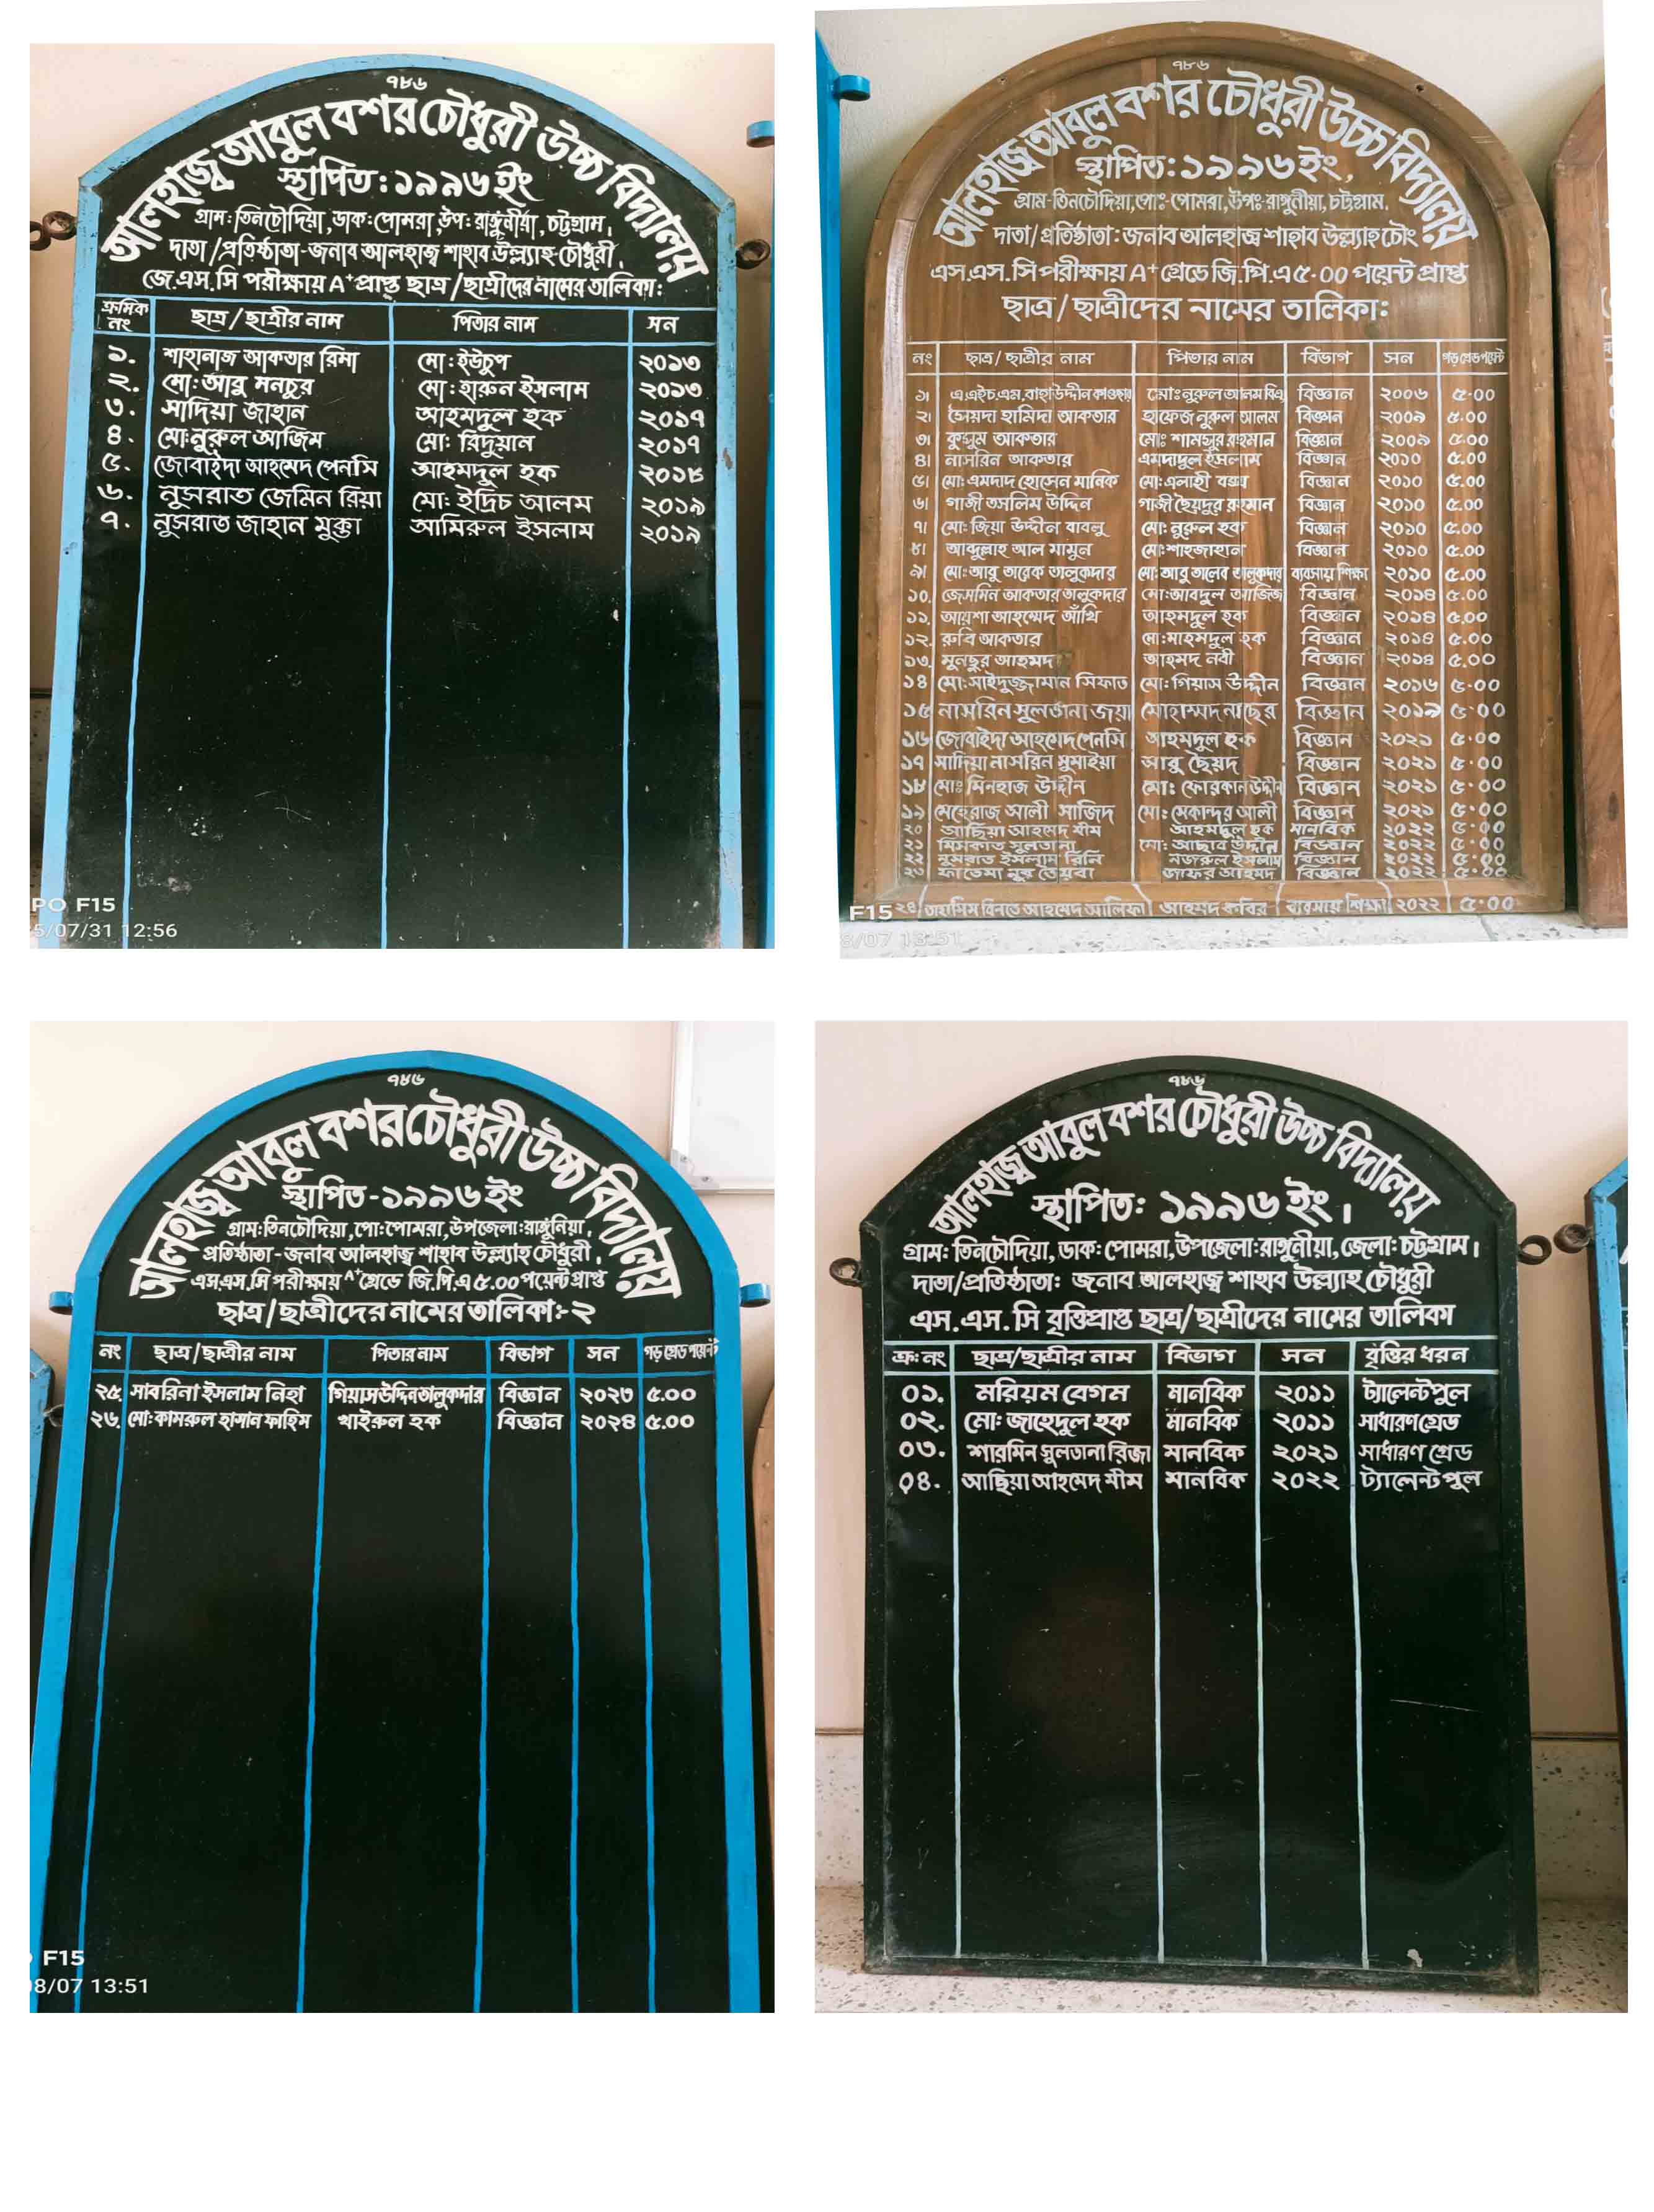 ৭৮৬
আলহাজ্ব আবুল বশর চৌধুরী উচ্চ বিদ্যালয়
স্থাপিত: ১৯৯৬ ইং
গ্রাম: তিনচৌদিয়া, ডাক: পোমরা, উপ: রাঙ্গুনীয়া, চট্টগ্রাম।
দাতা/প্রতিষ্ঠাতা-জনাব আলহাজ্ব শাহাব উল্ল্যাহ চৌধুরী।
জে.এস.সি পরীক্ষায় A+ প্রাপ্ত ছাত্র/ছাত্রীদের নামের তালিকা:
ক্রমিক নং ছাত্র/ছাত্রীর নাম পিতার নাম সন
১. শাহানাজ আকতার রিমা মো: ইউচুপ ২০১৩
২. মো: আবু মনচুর মো: হারুন ইসলাম ২০১৩
৩. সাদিয়া জাহান আহমদুল হক ২০১৭
৪. মো: নুরুল আজিম মো: রিদুয়ান ২০১৭
৫. জোবাইদা আহমেদ পেনসি আহমদুল হক ২০১৮
৬. নুসরাত জেমিন রিয়া মো: ইদ্রিচ আলম ২০১৯
৭. নুসরাত জাহান মুক্তা আমিরুল ইসলাম ২০১৯
PO F15
5/07/31 12:56
৭৮৬
আলহাজ্ব আবুল বশর চৌধুরী উচ্চ বিদ্যালয়
স্থাপিত: ১৯৯৬ ইং,
গ্রাম-তিনচৌদিয়া, পোঃ-পোমরা, উপঃ-রাঙ্গুনীয়া, চট্টগ্রাম.
দাতা/প্রতিষ্ঠাতা: জনাব আলহাজ্ব শাহাব উল্ল্যাহ চৌং
এস.এস.সি পরীক্ষায় A+ গ্রেডে জি.পি.এ ৫.০০ পয়েন্ট প্রাপ্ত
ছাত্র/ছাত্রীদের নামের তালিকা:
নং ছাত্র/ছাত্রীর নাম পিতার নাম বিভাগ সন গড় গ্রেড পয়েন্ট
১। এ.এইচ.এম.বাহাউদ্দীন কাওছার মোঃ নুরুল আলম বিজ্ঞান ২০০৬ ৫.০০
২। সৈয়দা হামিদা আকতার হাফেজ নুরুল আলম বিজ্ঞান ২০০৯ ৫.০০
৩। কুসুম আকতার মোঃ শামসুর রহমান বিজ্ঞান ২০০৯ ৫.০০
৪। নাসরিন আকতার এমদাদুল ইসলাম বিজ্ঞান ২০১০ ৫.০০
৫। মো: এমদাদ হোসেন মানিক মো: এলাহী বক্স বিজ্ঞান ২০১০ ৫.০০
৬। গাজী তসলিম উদ্দিন গাজী ছৈয়দুর রহমান বিজ্ঞান ২০১০ ৫.০০
৭। মো: জিয়া উদ্দীন বাবলু মো: নুরুল হক বিজ্ঞান ২০১০ ৫.০০
৮। আবদুল্লাহ আল মামুন মো: শাহজাহান বিজ্ঞান ২০১০ ৫.০০
৯। মো: আবু তারেক তালুকদার মো: আবু তালেব তালুকদার ব্যবসায় শিক্ষা ২০১০ ৫.০০
১০. জেসমিন আকতার তালুকদার মো: আবদুল আজিজ বিজ্ঞান ২০১৪ ৫.০০
১১. আয়শা আহম্মেদ আঁখি আহমদুল হক বিজ্ঞান ২০১৪ ৫.০০
১২. রুবি আকতার মো: মাহমদুল হক বিজ্ঞান ২০১৪ ৫.০০
১৩. মুনছুর আহমদ আহমদ নবী বিজ্ঞান ২০১৪ ৫.০০
১৪ মো: সাইদুজ্জামান সিফাত মো: গিয়াস উদ্দীন বিজ্ঞান ২০১৬ ৫.০০
১৫ নাসরিন সুলতানা জয়া মোহাম্মদ নাছের বিজ্ঞান ২০১৯ ৫.০০
১৬ জোবাইদা আহমেদ পেনসি আহমদুল হক বিজ্ঞান ২০২১ ৫.০০
১৭ সাদিয়া নাসরিন সুমাইয়া আবু ছৈয়দ বিজ্ঞান ২০২১ ৫.০০
১৮ মোঃ মিনহাজ উদ্দীন মো: ফোরকান উদ্দীন বিজ্ঞান ২০২১ ৫.০০
১৯ মেহেরাজ আলী সাজিদ মো: সেকান্দর আলী বিজ্ঞান ২০২১ ৫.০০
২০ আছিয়া আহমেদ মীম আহমদুল হক মানবিক ২০২২ ৫.০০
২১ মিসকাত সুলতানা মো: আছাব উদ্দীন বিজ্ঞান ২০২২ ৫.০০
২২ নুসরাত ইসলাম রিনি নজরুল ইসলাম বিজ্ঞান ২০২২ ৫.০০
২৩ ফাতেমা নুর তৈয়বা জাফর আহমদ বিজ্ঞান ২০২২ ৫.০০
২৪ তাহসিম বিনতে আহমেদ আলিফা আহমদ কবির ব্যবসায় শিক্ষা ২০২২ ৫.০০
F15
8/07 13:51
৭৮৬
আলহাজ্ব আবুল বশর চৌধুরী উচ্চ বিদ্যালয়
স্থাপিত-১৯৯৬ ইং
গ্রাম: তিনচৌদিয়া, পো: পোমরা, উপজেলা: রাঙ্গুনিয়া.
প্রতিষ্ঠাতা-জনাব আলহাজ্ব শাহাব উল্ল্যাহ চৌধুরী.
এস.এস.সি পরীক্ষায় A+ গ্রেডে জি.পি.এ ৫.০০ পয়েন্ট প্রাপ্ত
ছাত্র/ছাত্রীদের নামের তালিকা:-২
নং ছাত্র/ছাত্রীর নাম পিতার নাম বিভাগ সন গড় গ্রেড পয়েন্ট
২৫. সাবরিনা ইসলাম নিহা গিয়াস উদ্দিন তালুকদার বিজ্ঞান ২০২৩ ৫.০০
২৬. মো: কামরুল হাসান ফাহিম খাইরুল হক বিজ্ঞান ২০২৪ ৫.০০
F15
08/07 13:51
৭৮৬
আলহাজ্ব আবুল বশর চৌধুরী উচ্চ বিদ্যালয়
স্থাপিত: ১৯৯৬ ইং।
গ্রাম: তিনচৌদিয়া, ডাক: পোমরা, উপজেলা: রাঙ্গুনীয়া, জেলা: চট্টগ্রাম।
দাতা/প্রতিষ্ঠাতা: জনাব আলহাজ্ব শাহাব উল্ল্যাহ চৌধুরী
এস.এস.সি বৃত্তিপ্রাপ্ত ছাত্র/ছাত্রীদের নামের তালিকা
ক্র: নং ছাত্র/ছাত্রীর নাম বিভাগ সন বৃত্তির ধরন
০১. মরিয়ম বেগম মানবিক ২০১১ ট্যালেন্টপুল
০২. মো: জাহেদুল হক মানবিক ২০১১ সাধারণ গ্রেড
০৩. শারমিন সুলতানা রিজা মানবিক ২০২১ সাধারণ গ্রেড
০৪. আছিয়া আহমেদ মীম মানবিক ২০২২ ট্যালেন্ট পুল